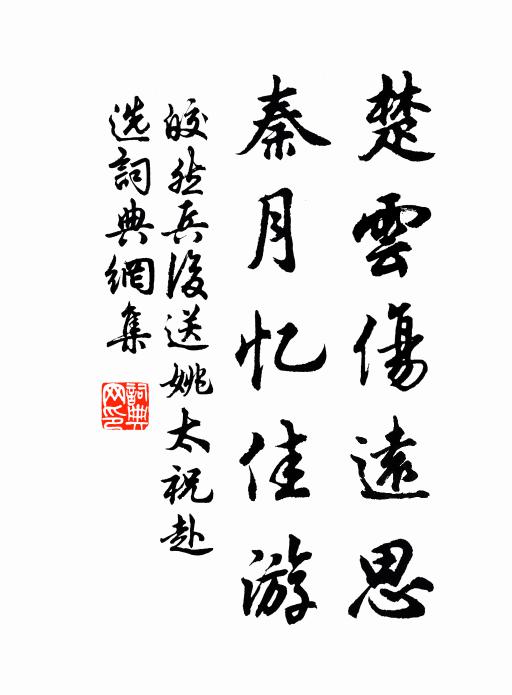 楚雲傷遠思
秦月忆佳游
皎然兵後送姚太祝赴
选詞典網集
詞典網印